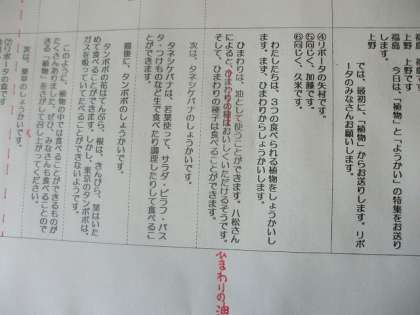 福島です
上野　上野です。
福島　今日は、「植物」と「ようかい」の特集をお送り
します。
上野　では、最初に、「植物」からお送りします。リポ
ータのみなさんお願いします。
④リポータの矢村です。
⑤同じく、加藤です。
⑥同じく、久米です。
わたしたちは、３つの食べられる植物をしょうかいし
ます。まず、ひまわりからしょうかいします。
ひまわりは、油として使うことができます。八松さん
によると、ひまわりの種はおいしくいただけるそうです。
そして、ひまわりの種子は食べることができます。
ひまわりの油
次は、タネツケバナのしょうかいです。
タネツケバナは、若葉使って、サラダ・ピラフ・パス
タ・つけものなど生で食べたり調理したりして食べるこ
とができます。
最後に、タンポポのしょうかいです。
タンポポの花はてんぷら、根は、きんぴら、葉はいた
めて食べることができます。しかし、東京のタンポポは、
ガスを吸っていて食べることができないようです。
このように、植物の中では食べることができるものが
たくさんありました。ぜひ、みなさんも食べることので
きる「植物」をさがしてめし上がってください。
次は、薬草のしょうかいです。
⑦リポータの森です